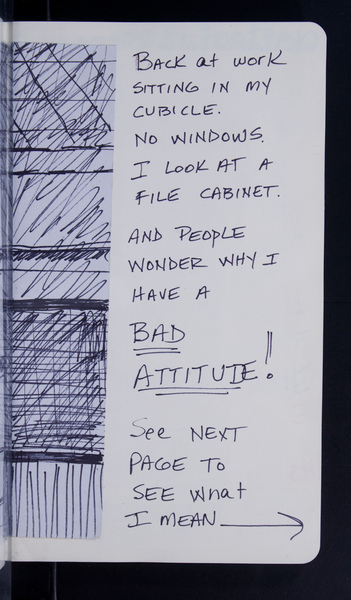 Back at work
sitting in my
cubicle.
No windows.
I look at a
file cabinet.
And people
wonder why I
have a
BAD
ATTITUDE!
See next
page to
see what
I mean